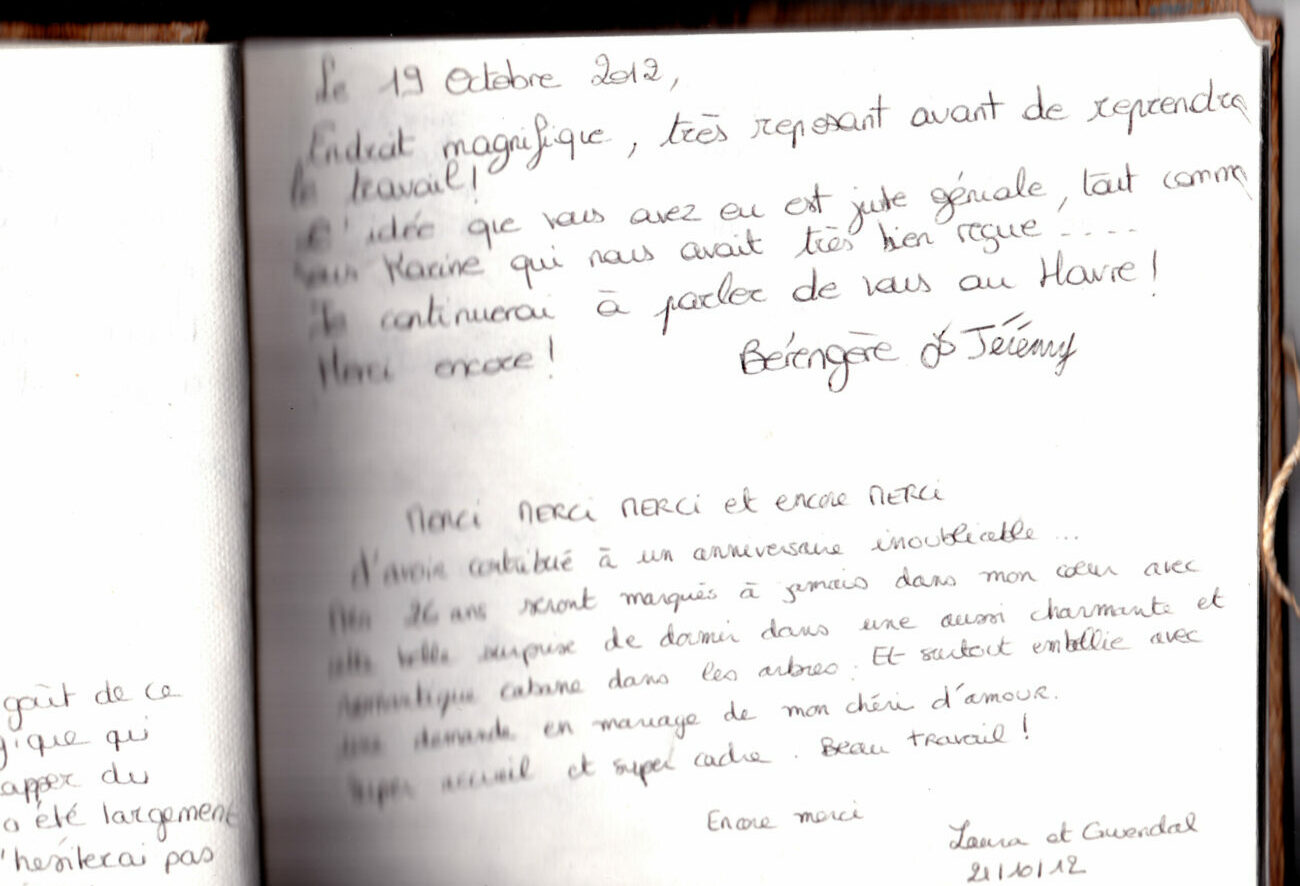 goût de ce
gique qui
apper du
a été largement
'hésiterai pas
Le 19 Octobre 2012,
Endroit magnifique, très reposant avant de reprendre
le travail!
L'idée que vous avez eu est juste géniale, tout comme
vous Karine qui nous avait très bien reçue ....
Je continuerai à parler de vous au Havre!
Merci encore!
Bérengère & Jérémy
Merci MERCi MERCi et encore MERCi
d'avoir contribué à un anniversaire inoubliable...
Mes 26 ans seront marqués à jamais dans mon cœur avec
cette belle surprise de dormir dans une aussi charmante et
romantique cabane dans les arbres. Et surtout embellie avec
une demande en mariage de mon chéri d'amour.
Super accueil et super cadre. Beau travail!
Encore merci
Laura et Gwendal
21/10/12